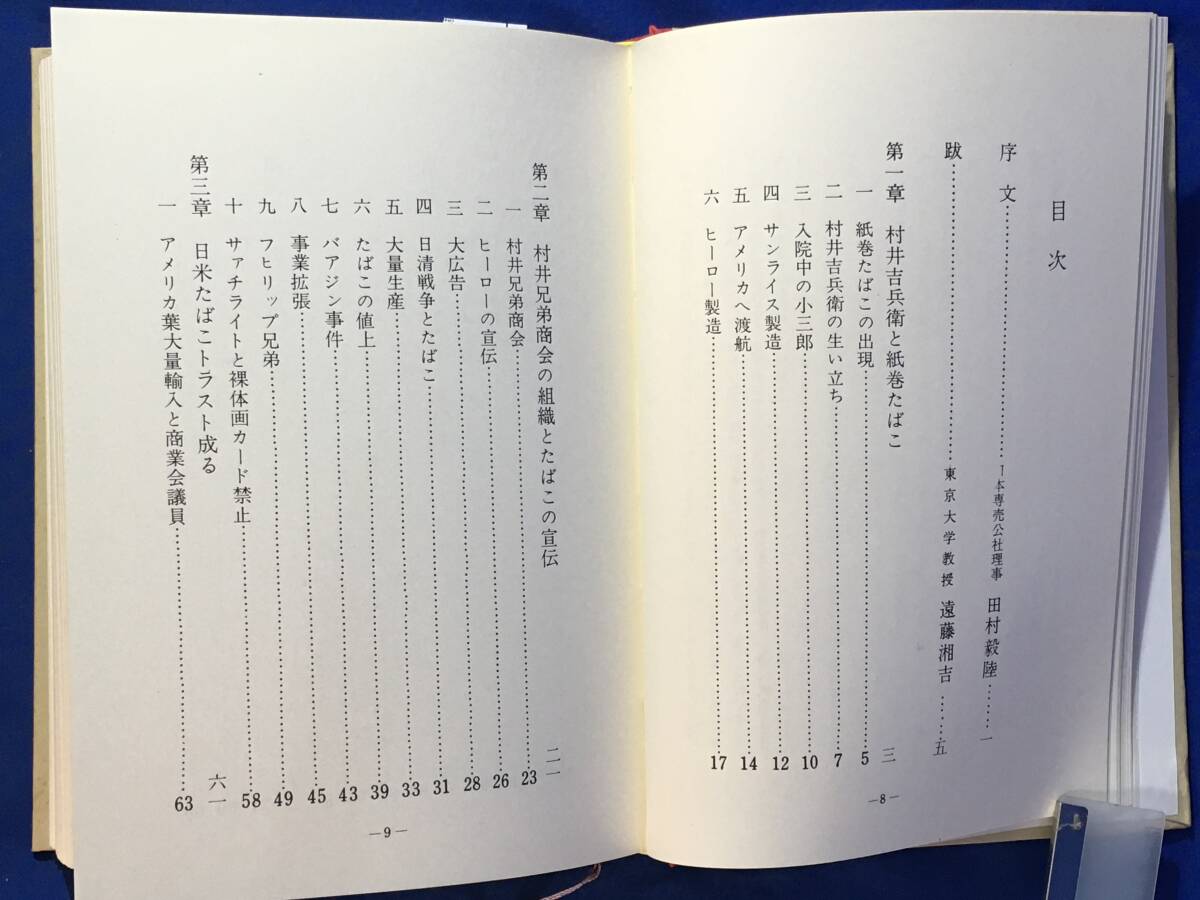 目次
序文……………………………日本専売公社理事 田村毅陸……一
跋……………………………東京大学教授 遠藤湘吉……五
第一章 村井吉兵衛と紙巻たばこ 三
一 紙巻たばこの出現……………………………5
二 村井吉兵衛の生い立ち……………………………7
三 入院中の小三郎……………………………10
四 サンライス製造……………………………12
五 アメリカへ渡航……………………………14
六 ヒーロー製造……………………………17
―8―
第二章 村井兄弟商会の組織とたばこの宣伝 二一
一 村井兄弟商会……………………………23
二 ヒーローの宣伝……………………………26
三 大広告……………………………28
四 日清戦争とたばこ……………………………31
五 大量生産……………………………33
六 たばこの値上……………………………39
七 バアジン事件……………………………43
八 事業拡張……………………………45
九 フヒリップ兄弟……………………………49
十 サァチライトと裸体画カード禁止……………………………58
第三章 日米たばこトラスト成る 六一
一 アメリカ葉大量輸入と商業会議員……………………………63
―9―